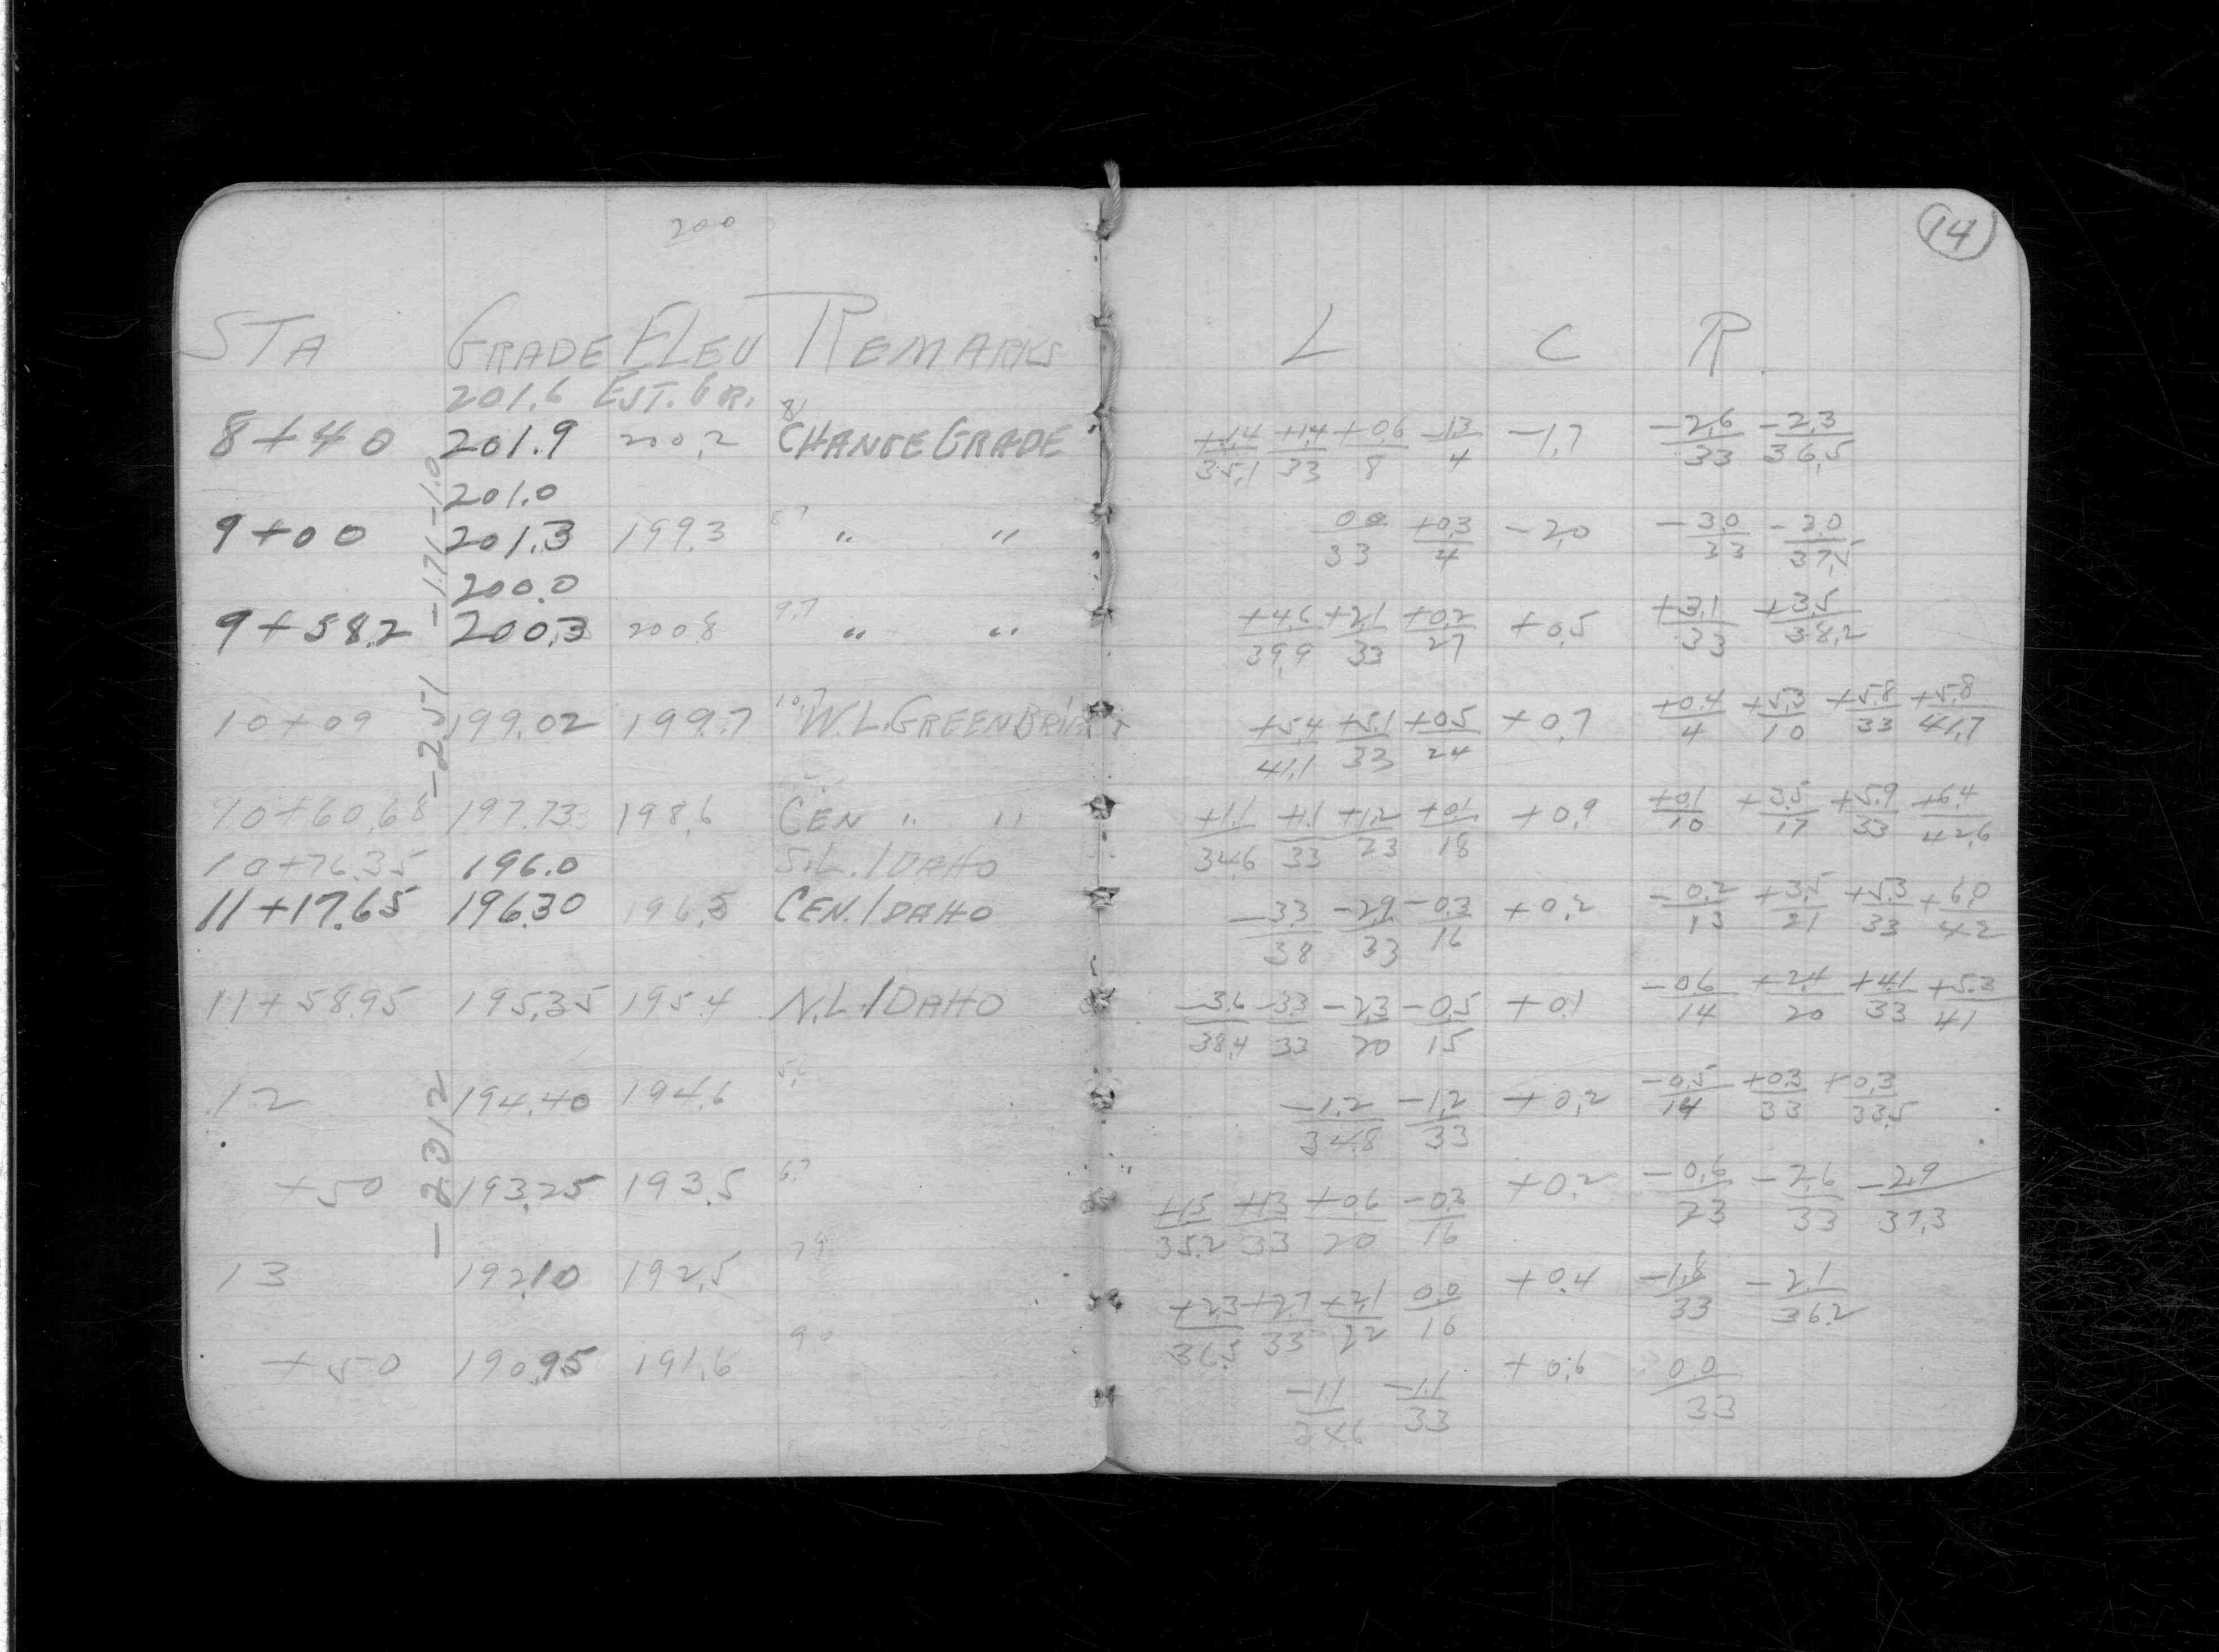 200
STA GRADE ELEV REMARKS
201.6 EST. GR.
8+40 201.9 200.2 CHANGE GRADE
-1.0
201.0
9+00 201.3 199.3 " "
-1.71
200.0
9+58.2 200.3 200.8 9.7 " "
-2.51
10+09 199.02 199.7 10.7 W.L. GREENBRIER
10+60.68 197.73 198.6 CEN " "
10+76.35 196.0 S.L. IDAHO
11+17.65 196.30 196.5 CEN. IDAHO
11+58.95 195.35 195.4 N.L. IDAHO
12 194.40 194.6
-2.312
+50 193.25 193.5 6.7
13 192.10 192.5 7.9
+50 190.95 191.6 9.0
14
L C R
+1.4/35.1 +1.4/33 +0.6/8 -1.3/4 -1.7 -2.6/33 -2.3/36.5
0.0/33 +0.3/4 -2.0 -3.0/33 -3.0/37.5
+4.6/39.9 +2.1/33 +0.2/27 +0.5 +3.1/33 +3.5/38.2
+5.4/41.1 +5.1/33 +0.5/24 +0.7 +0.4/4 +5.3/10 +5.8/33 +5.8/41.7
+1.1/34.6 +1.1/33 +1.2/23 +0.1/18 +0.9 +0.1/10 +3.5/17 +5.9/33 +6.4/42.6
-3.3/38 -2.9/33 -0.3/16 +0.2 -0.2/13 +3.5/21 +5.3/33 +6.0/42
-3.6/38.4 -3.3/33 -2.3/20 -0.5/15 +0.1 -0.6/14 +2.4/20 +4.1/33 +5.3/41
-1.2/34.8 -1.2/33 +0.2 -0.5/14 +0.3/33 +0.3/33.5
+1.5/35.2 +1.3/33 +0.6/20 -0.3/16 +0.2 -0.6/23 -2.6/33 -2.9/37.3
+2.3/36.5 +2.7/33 +2.1/22 0.0/16 +0.4 -1.8/33 -2.1/36.2
-1.1/34.6 -1.1/33 +0.6 0.0/33